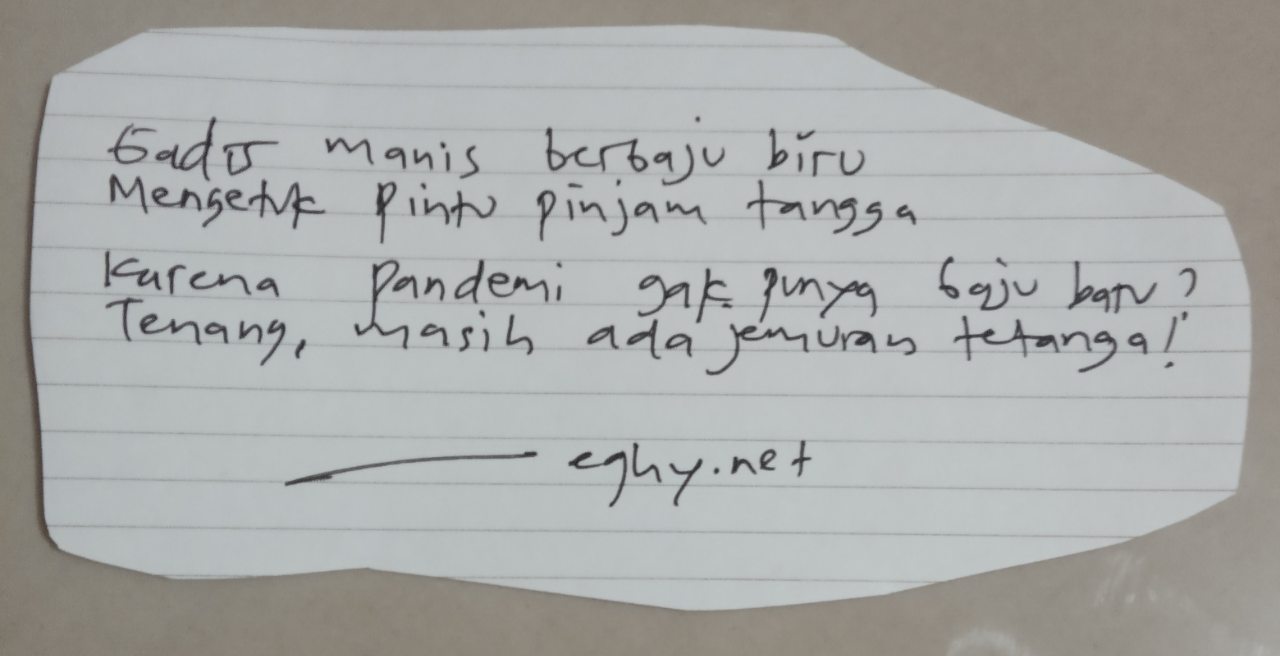 Gadis manis berbaju biru
Mengetuk pintu pinjam tangga
Karena pandemi gak punya baju baru?
Tenang, masih ada jemuran tetanga!
eghy.net